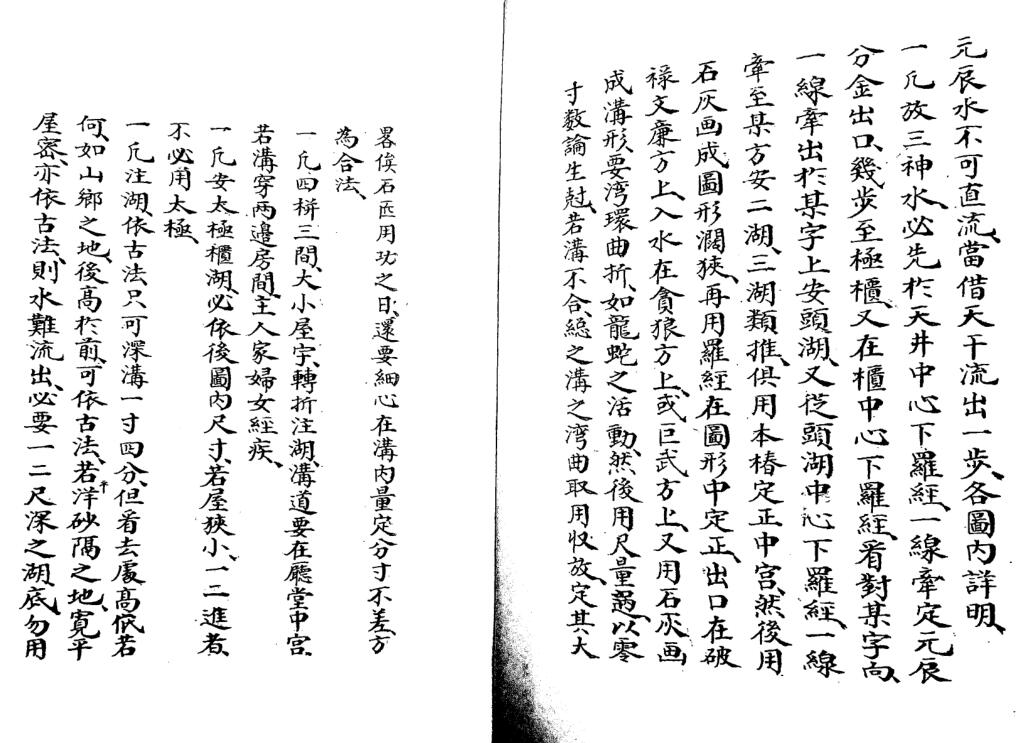 元辰水不可直流、當借天干流出一步、各圖內詳明、
一凡放三神水、必先扵天井中心下羅經、一線牽定元辰
分金出口、幾步至極櫃、又在櫃中心下羅經、看對某字向、
一線牽出扵某字上安頭湖、又從頭湖中心下羅經、一線
牽至某方安二湖、三湖類推、俱用本樁定正中宮、然後用
石灰画成圖形濶狹、再用羅經在圖形中定正、出口在破
祿文廉方上、入水在貪狼方上、或巨武方上、又用石灰画
成溝形、要湾環曲折、如龍蛇之活動、然後用尺量過、以零
寸数論生尅、若溝不合、総之溝之湾曲取用収放、定其大
畧俟石匠用功之日、還要細心在溝內量定分寸不差、方
為合法、
一凡四栟三間、大小屋宇、轉折注湖、溝道要在廳堂中宮、
若溝穿兩邊房間、主人家婦女經疾、
一凡安太極櫃湖、必依後圖內尺寸、若屋狹小、一二進者、
不必用太極、
一凡注湖、依古法只可深溝一寸四分、但看去處高低若
何、如山鄉之地、後高扵前、可依古法、若洋平砂隔之地、寬平
屋密、亦依古法、則水難流出、必要一二尺深之湖、底勿用